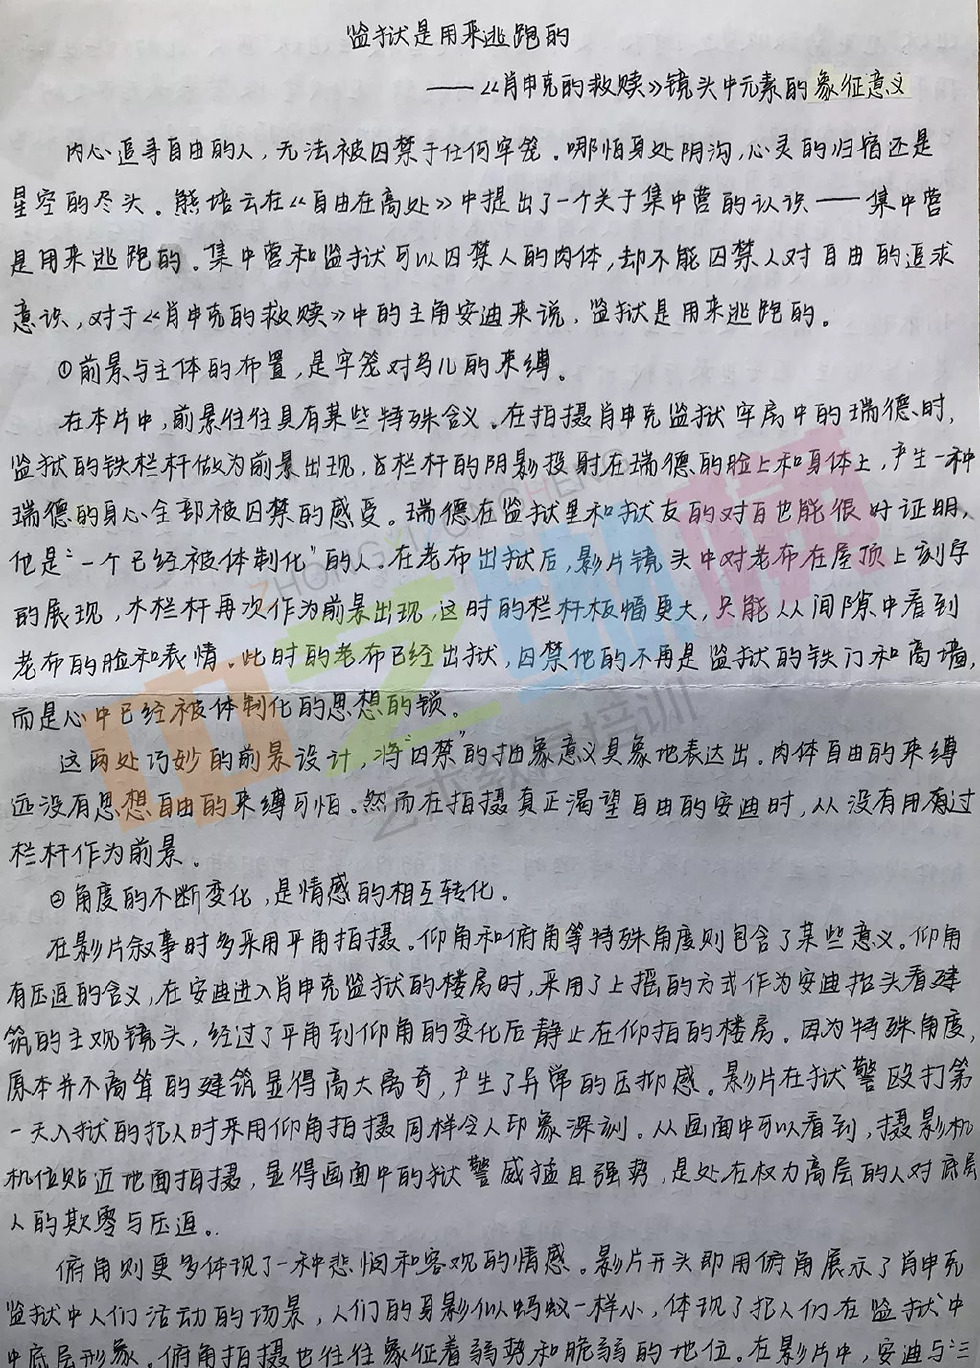 监狱是用来逃跑的
——《肖申克的救赎》镜头中元素的象征意义
内心追寻自由的人，无法被囚禁于任何牢笼。哪怕身处阴沟，心灵的归宿还是
星空的尽头。熊培云在《自由在高处》中提出了一个关于集中营的认识——集中营
是用来逃跑的。集中营和监狱可以囚禁人的肉体，却不能囚禁人对自由的追求
意识，对于《肖申克的救赎》中的主角安迪来说，监狱是用来逃跑的。
①前景与主体的布置，是牢笼对鸟儿的束缚。
在本片中，前景往往具有某些特殊含义。在拍摄肖申克监狱牢房中的瑞德时，
监狱的铁栏杆做为前景出现，栏杆的阴影投射在瑞德的脸上和身体上，产生一种
瑞德的身心全部被囚禁的感受。瑞德在监狱里和狱友的对白也能很好证明，
他是“一个已经被体制化”的人。在老布出狱后，影片镜头中对老布在屋顶上刻字
的展现，木栏杆再次作为前景出现，这时的栏杆板幅更大，只能从间隙中看到
老布的脸和表情。此时的老布已经出狱，囚禁他的不再是监狱的铁门和高墙，
而是心中已经被体制化的思想的锁。
这两处巧妙的前景设计，将“囚禁”的抽象意义具象地表达出。肉体自由的束缚
远没有思想自由的束缚可怕。然而在拍摄真正渴望自由的安迪时，从没有用过
栏杆作为前景。
②角度的不断变化，是情感的相互转化。
在影片叙事时多采用平角拍摄。仰角和俯角等特殊角度则包含了某些意义。仰角
有压迫的含义，在安迪进入肖申克监狱的楼房时，采用了上摇的方式作为安迪抬头看建
筑的主观镜头，经过了平角到仰角的变化后静止在仰拍的楼房。因为特殊角度，
原本并不高耸的建筑显得高大离奇，产生了异常的压抑感。影片在狱警殴打第
一天入狱的犯人时采用仰角拍摄同样令人印象深刻。从画面中可以看到，摄影机
机位贴近地面拍摄，显得画面中的狱警威猛且强势，是处在权力高层的人对底层
人的欺零与压迫。
俯角则更多体现了一种悲悯和客观的情感。影片开头即用俯角展示了肖申克
监狱中人们活动的场景，人们的身影似蚂蚁一样小，体现了犯人们在监狱中
中底层形象。俯角拍摄也往往象征着弱势和脆弱的地位。在影片中，安迪与“三
中艺创筑
ZHONGYICHUANGZHU
艺术教育培训